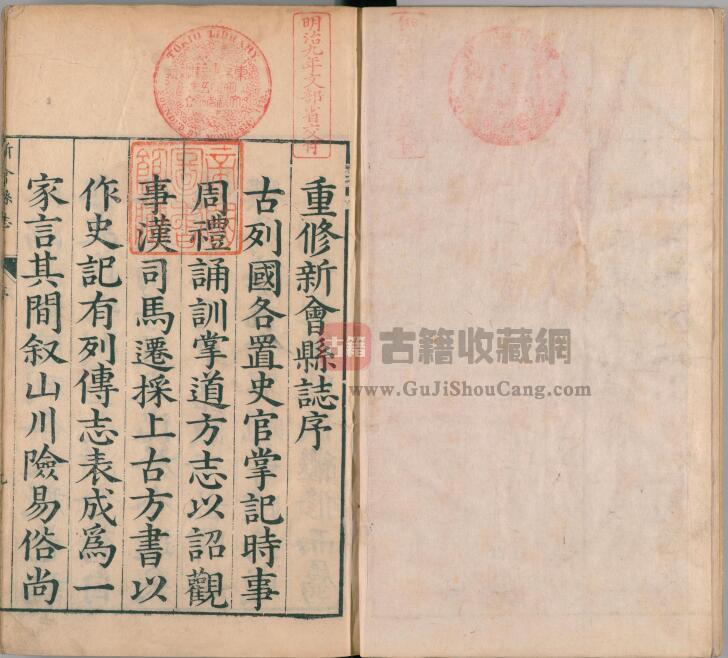 重修新會縣誌序
古列國各置史官掌記時事
周禮誦訓掌道方志以詔觀
事漢司馬遷採上古方書以
作史記有列傳志表成爲一
家言其間叙山川險易俗尚
明治九年文部省交付
TOKIO LIBRARY
新會縣志
序
古籍
古籍收藏網
www.GuJiShouCang.com